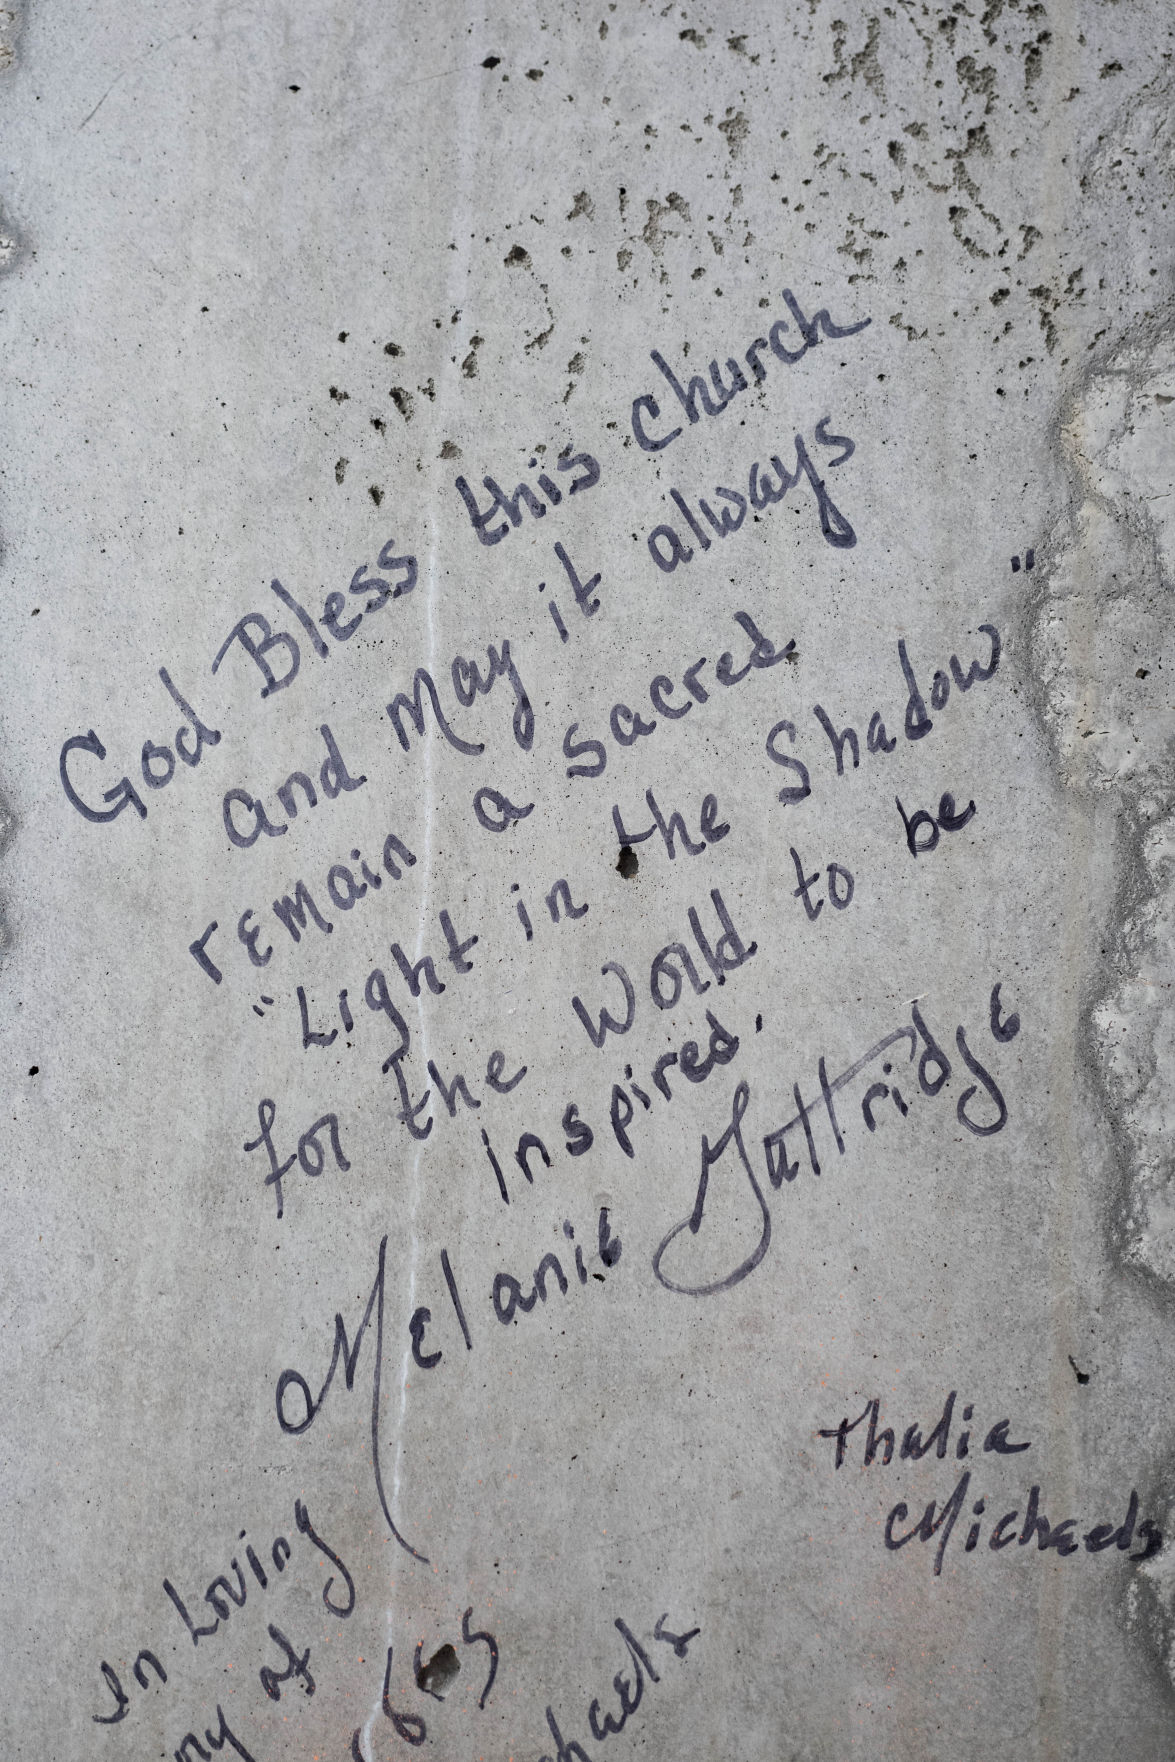 God Bless this church
and may it always
remain a sacred
"Light in the Shadow"
for the World to be
inspired.
Melanie Guttridge
Thalia
Michaels
In Loving
of